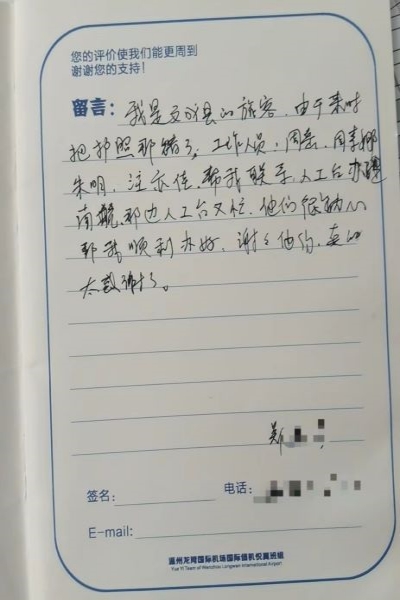 您的评价使我们能更周到
谢谢您的支持!
留言：我是文成县的旅客，由于来时
把护照那错了，工作人员：周蕓、周李娜
朱明，汪亦佳，帮我联系人工台办理
南航，那边人工台又忙，他们很纳心
帮我顺利办好，谢谢他们，真的
太感谢了。
郑
签名：
电话：
E-mail:
温州龙湾国际机场国际值机悦翼班组
Yue Yi Team of Wenzhou Longwan International Airport